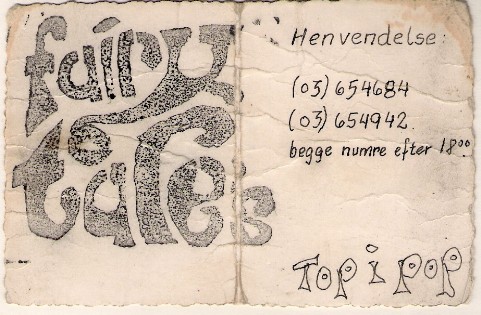 fairy
tales
Henvendelse:
(03) 654684
(03) 654942
begge numre efter 18⁰⁰
Top i pop